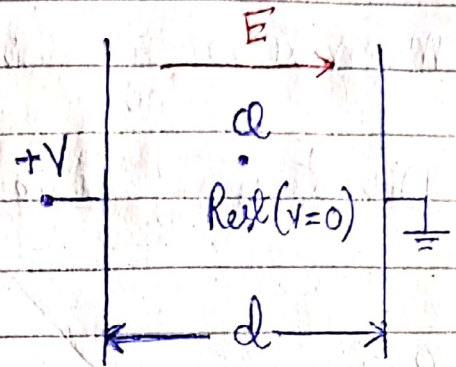 E
Q
+V
Rest (v=0)
d